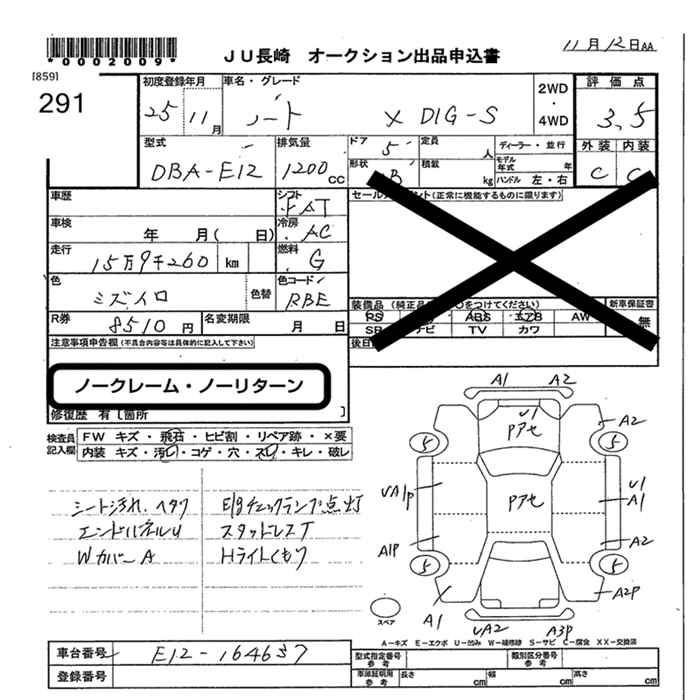 *0002009*
JU長崎 オークション出品申込書
11月12日AA
[859]
291
初度登録年月 車名・グレード 2WD・4WD 評価点
25 11月 ノート X DIG-S 3.5
型式 排気量 ドア 定員 ディーラー・並行 外装 内装
DBA-E12 1200cc 5 人 モデル年式 年 C C
形状 積載 kg ハンドル 左・右
車歴 シフト FAT
セールスポイント(正常に機能するものに限ります)
車検 年 月( 日) 冷房 AC
走行 15万9千260 km 燃料 G
色 ミズイロ 色替 色コード RBE
装備品(純正品に○をつけてください) 新車保証書
PS ABS エアB AW 無
SR ナビ TV カワ
R券 8510円 名変期限 月 日
後日
注意事項申告欄(不具合内容等は具体的に記入して下さい)
ノークレーム・ノーリターン
修復歴 有[箇所 ]
検査員記入欄 FW キズ・飛石・ヒビ割・リペア跡・×要
内装 キズ・汚レ・コゲ・穴・スレ・キレ・破レ
シート汚れ、ヘタク E/gチェックランプ点灯
エンドパネルU スタッドレスT
Wカバー A Hライトくもり
A1 A2
U1
Pアセ
A2
5 5
UA1P
Pアセ
U1
A1
A1P
A2
5 5
A1
A2P
UA2 A3P
スペア
A-キズ E-エクボ U-凹み W-補修跡 S-サビ C-腐食 XX-交換済
車台番号 E12-164637
型式指定番号 参考 類別区分番号 参考
登録番号
車庫証明用 参考 長さ cm 幅 cm 高さ cm